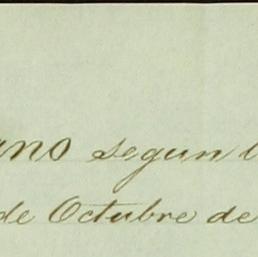 ano segun l
de Octubre de